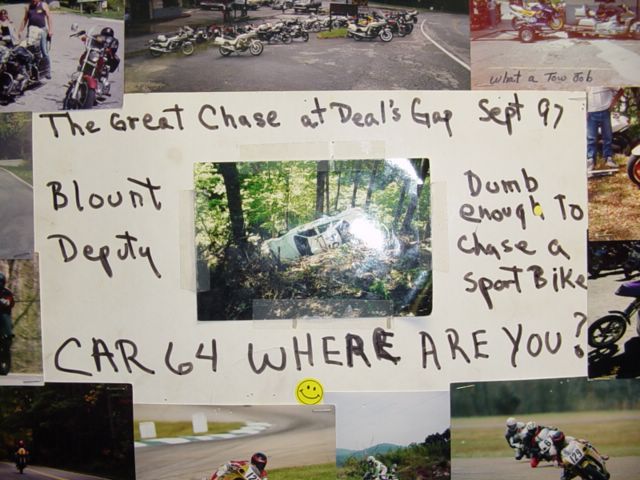 What a Tow Job
The Great Chase at Deal's Gap Sept 97
Blount
Deputy
Dumb
enough To
chase a
Sport Bike
CAR 64 WHERE ARE YOU?
129